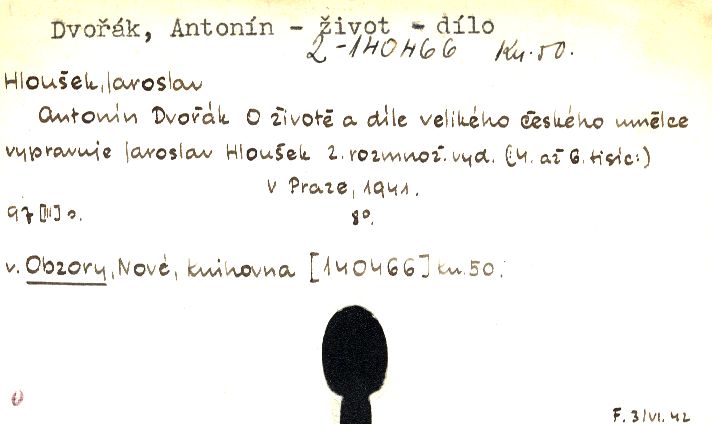 Dvořák, Antonín - život - dílo
2-140466 Kn. 50.
Hloušek, Jaroslav
Antonín Dvořák O životě a díle velikého českého umělce
vypravuje Jaroslav Hloušek 2. rozmnož. vyd. (:4. až 6. tisíc:)
v Praze, 1941.
97 [III] s. 8°.
v. Obzory, Nové, knihovna [140466] kn. 50.
F. 3/VI. 42